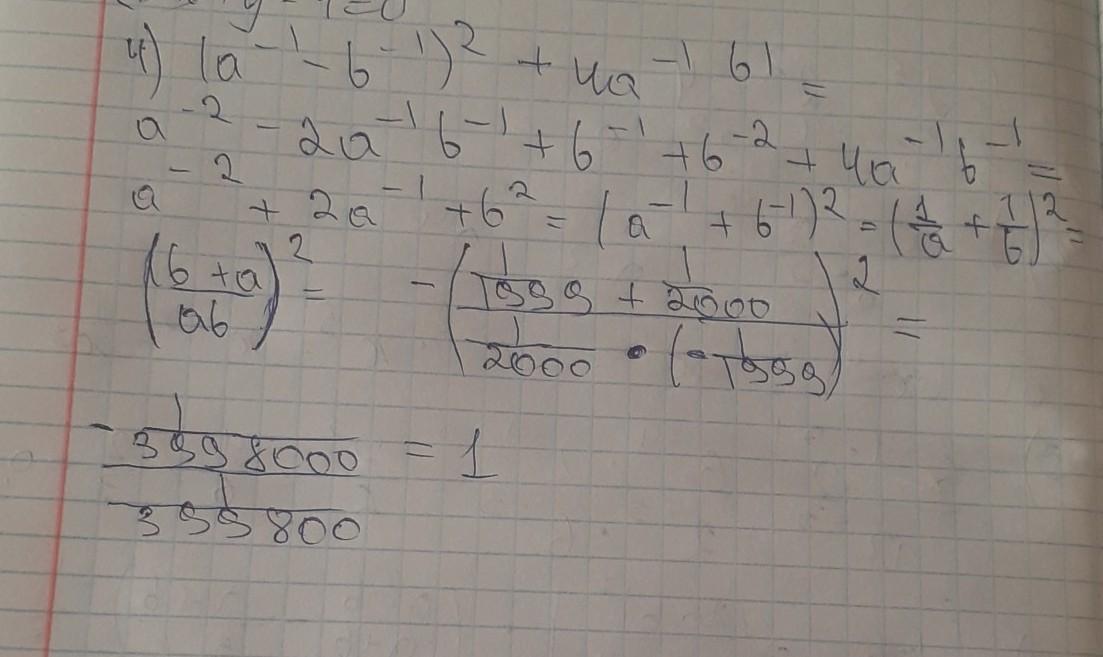 y - 1 = 0
4) (a⁻¹ - b⁻¹)² + 4a⁻¹ b¹ =
a⁻² - 2a⁻¹ b⁻¹ + b⁻¹ + b⁻² + 4a⁻¹ b⁻¹ =
a⁻² + 2a⁻¹ + b² = (a⁻¹ + b⁻¹)² = (1/a + 1/b)² =
((b + a)/ab)² = -((1/1999 + 1/2000)/(1/2000 · (-1/1999)))² =
-(1/3998000)/(1/399800) = 1